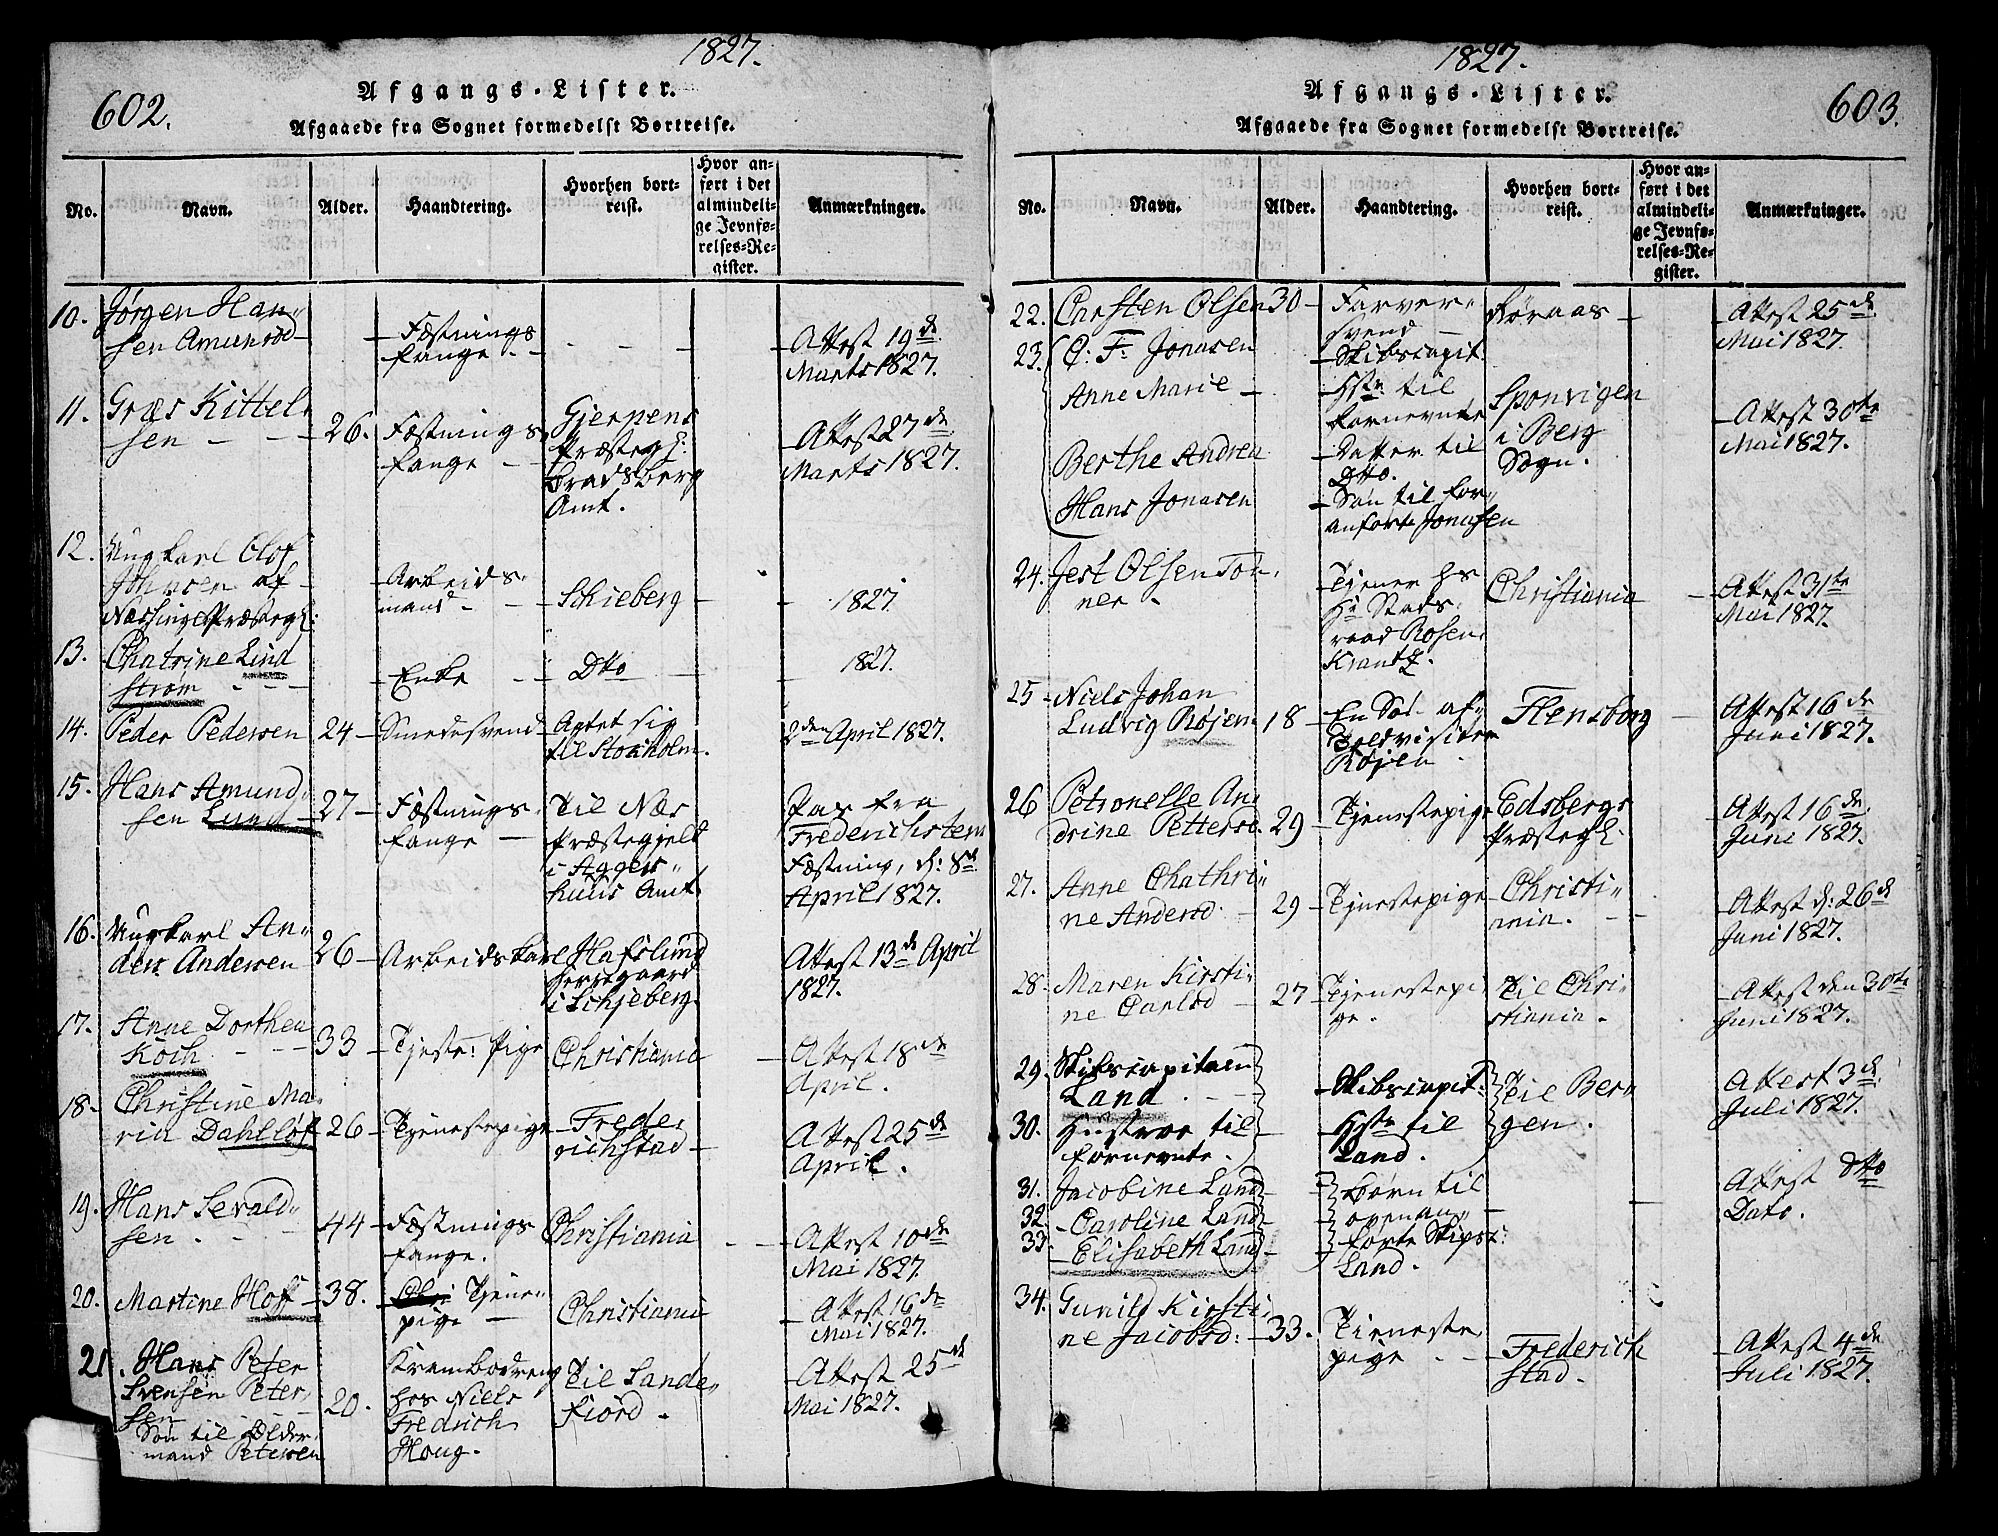 1827.
602.
Afgangs-Lister.
Afgaaede fra Sognet formedelst Bortreise.
No.
Navn.
Alder.
Haandtering.
Hvorhen bort-
reist.
Hvor an-
ført i det
almindeli-
ge Jevnfø-
relses-Re-
gister.
Anmærkninger.
10.
Jørgen Han-
sen Amunrød
Fæstnings
fange
Attest 19de
Marts 1827.
11.
Græs Kittel-
sen
26.
Fæstnings
fange
Gjerpens
Præstegj:
Bradsberg
Amt.
Attest 27de
Marts 1827.
12.
Ungkarl Olof
Johnsen af
Næssinge Præstegj:
Arbeids-
mand
Schieberg
1827.
13.
Chatrine Lind
strøm
Enke
Dto
1827.
14.
Peder Pedersen
24
Smedesvend
Agtet sig
til Stokholm.
2den April 1827.
15.
Hans Amund-
sen Lund
27
Fæstnings-
fange
Til Næs
Præstegjeld
i Agger-
huus Amt.
Pas fra
Frederichsteen
Fæstning, d: 8de
April 1827.
16.
Ungkarl An-
ders Andersen
26
Arbeidskarl
Hafslund
herregaard
i Schjeberg.
Attest 13de April
1827.
17.
Anne Dorthea
Koch
33
Tjeste: Pige
Christiania
Attest 18de
April.
18.
Christine Ma-
ria Dahlløf
26
Tjenestepige
Frede-
richstad
Attest 25de
April.
19.
Hans Sevald-
sen.
44
Fæstnings
fange.
Christiania
Attest 10de
Mai 1827.
20.
Martine Hoff
38.
Tjene-
pige
Christiania
Attest 16de
Mai 1827.
21.
Hans Peter
Svensen Peter-
sen
Søn til Older-
mand Petersen
20.
Krambodreng
hos Niels
Fredrich
Houg.
Til Sande-
fiord.
Attest 25de
Mai 1827.
1827.
603.
Afgangs-Lister.
Afgaaede fra Sognet formedelst Bortreise.
No.
Navn.
Alder.
Haandtering.
Hvorhen bort-
reist.
Hvor an-
ført i det
almindeli-
ge Jevnfø-
relses-Re-
gister.
Anmærkninger.
22.
Christen Olsen
30
Farver-
svend
Røraas
Attest 25de
Mai 1827.
23.
C: F: Jonasen
Skibscapit.
Anne Marie
Hstr: til
fornevnte
Berthe Andrea
Datter til
Dtto.
Hans Jonasen
Søn til for-
anførte Jonasen
Sponvigen
i Berg
Sogn.
Attest 30te
Mai 1827.
24.
Jest Olsen Ton-
ner
Tjener hs
Hr Stads-
raad Rosen-
Krantz.
Christiania
Attest 31te
Mai 1827.
25
Niels Johan
Ludvig Røjen
18
En Søn af
Toldvisiteur
Røjen
Flensborg
Attest 16de
Juni 1827.
26
Petronelle An-
drine Petters:
29
Tjenestepige
Edsbergs
Præstegj:
Attest 16de
Juni 1827.
27.
Anne Chathri-
ne Andersd:
29
Tjenestepige
Christi-
ania.
Attest d: 26de
Juni 1827.
28.
Maren Kirsti-
ne Carlsd
27
Tjenestepi-
ge.
Til Chri-
stiania.
Attest den 30te
Juni 1827.
29.
Skibscapitain
Land
Skibscapit:
Til Ber-
gen.
Attest 3de
Juli 1827.
30.
Hustroe til
fornevnte.
Hstr: til
Land.
31.
Jacobine Land
32.
Caroline Land
33.
Elisabeth Land
Børn til
ovenan-
førte Skips:
Land.
Attest dtto
Dato.
34.
Gunild Kirsti-
ne Jacobsd:
33.
Tieneste
pige
Frederich
stad.
Attest 4de
Juli 1827.